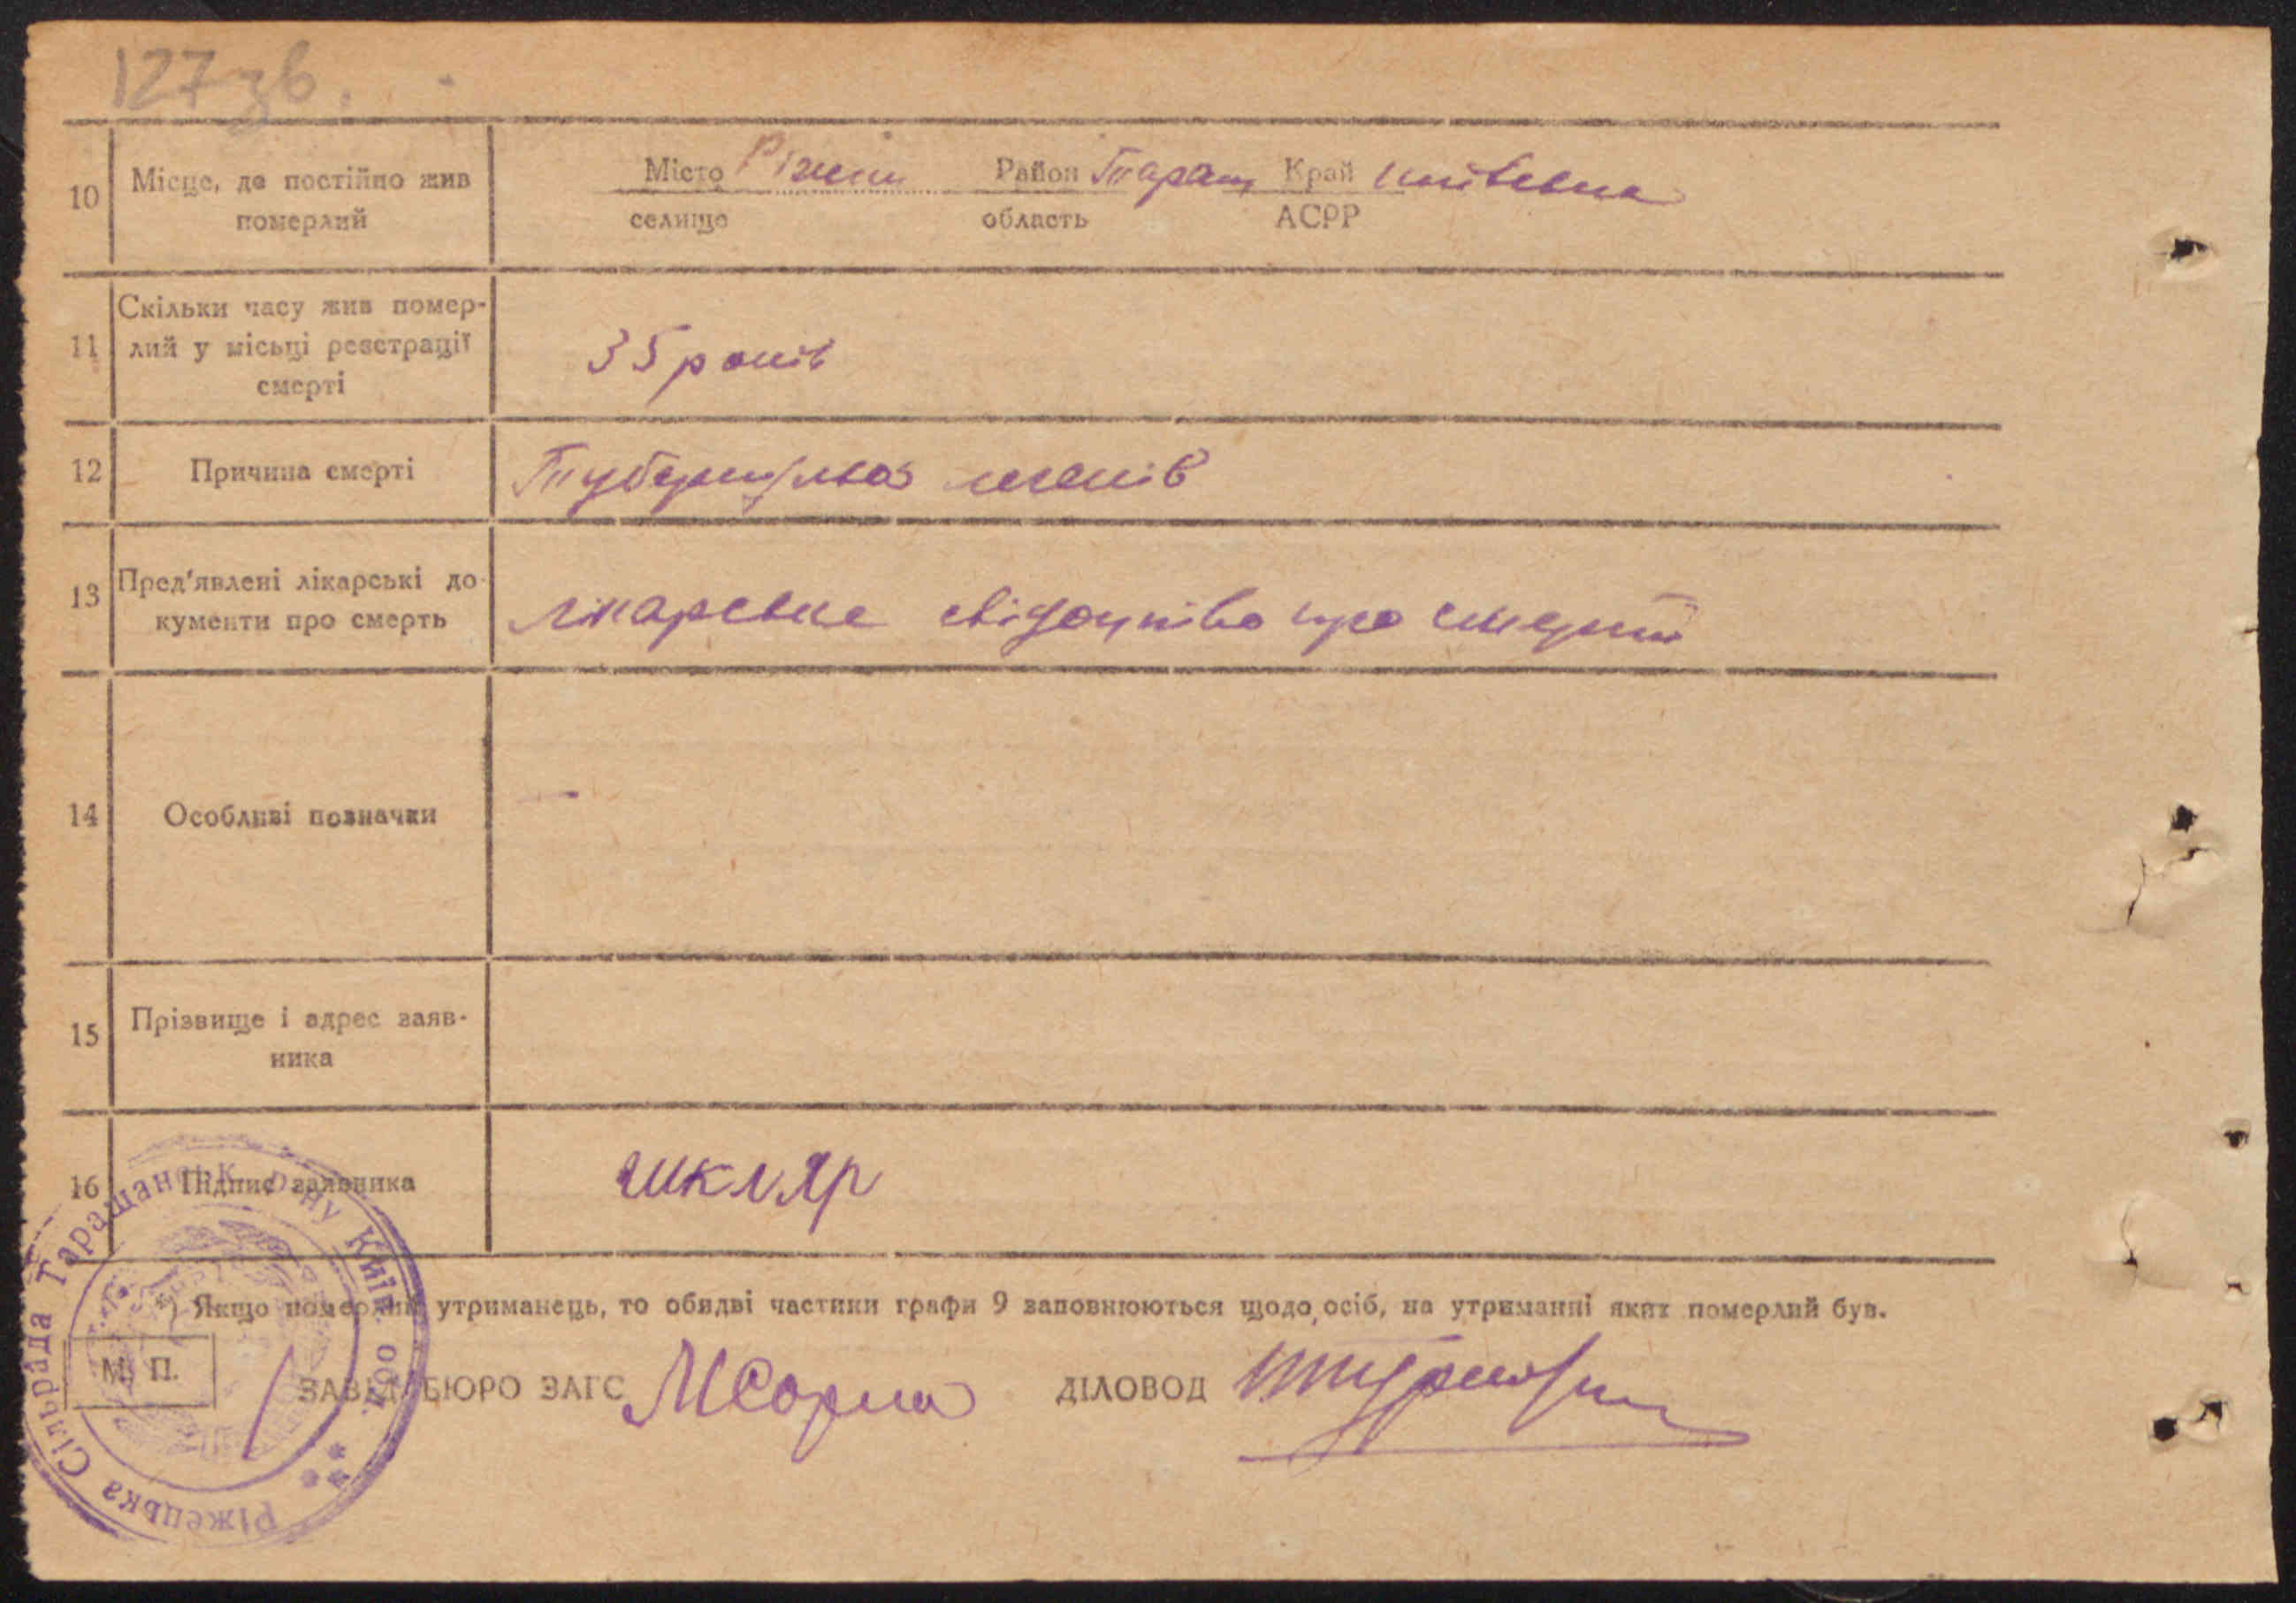 127 зв.
10 Місце, де постійно жив Місто Ріжки Район Таращ Край Київська
померлий селище область АСРР
Скільки часу жив помер-
11 лий у місьці реєстрації 35 років
смерті
12 Причина смерті Туберкульоз легенів
13 Пред'явлені лікарські до-
кументи про смерть лікарське свідоцтво про смерть
14 Особливі позначки -
15 Прізвище і адрес заяв-
ника
16 Підпис заявника шкляр
*) Якщо померлий утриманець, то обидві частини графи 9 заповнюються щодо осіб, на утриманні яких померлий був.
М. П.
ЗАВІД. БЮРО ЗАГС ДІЛОВОД
Ріжецька Сільрада Таращанськ. р-ну Київ. обл.